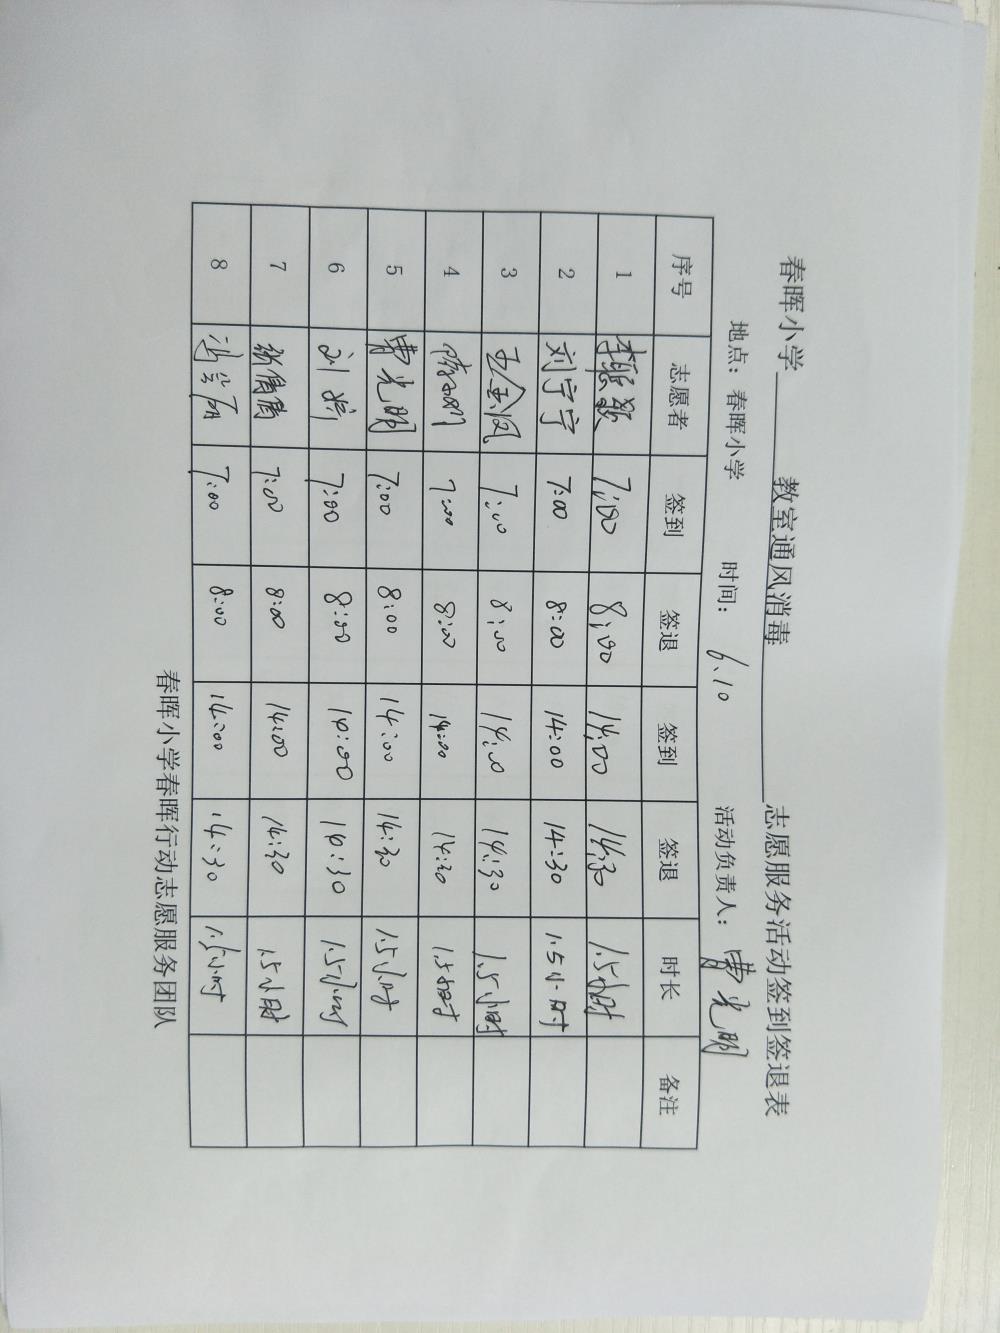 春晖小学 教室通风消毒 志愿服务活动签到签退表
地点：春晖小学 时间：6.10 活动负责人：曹光明
序号 志愿者 签到 签退 签到 签退 时长 备注
1 7:00 8:00 14:00 14:30 1.5小时
2 刘宁宁 7:00 8:00 14:00 14:30 1.5小时
3 王金凤 7:00 8:00 14:00 14:30 1.5小时
4 7:00 8:00 14:00 14:30 1.5小时
5 曹光明 7:00 8:00 14:00 14:30 1.5小时
6 刘婷 7:00 8:00 14:00 14:30 1.5小时
7 张倩倩 7:00 8:00 14:00 14:30 1.5小时
8 7:00 8:00 14:00 14:30 1.5小时
春晖小学春晖行动志愿服务团队